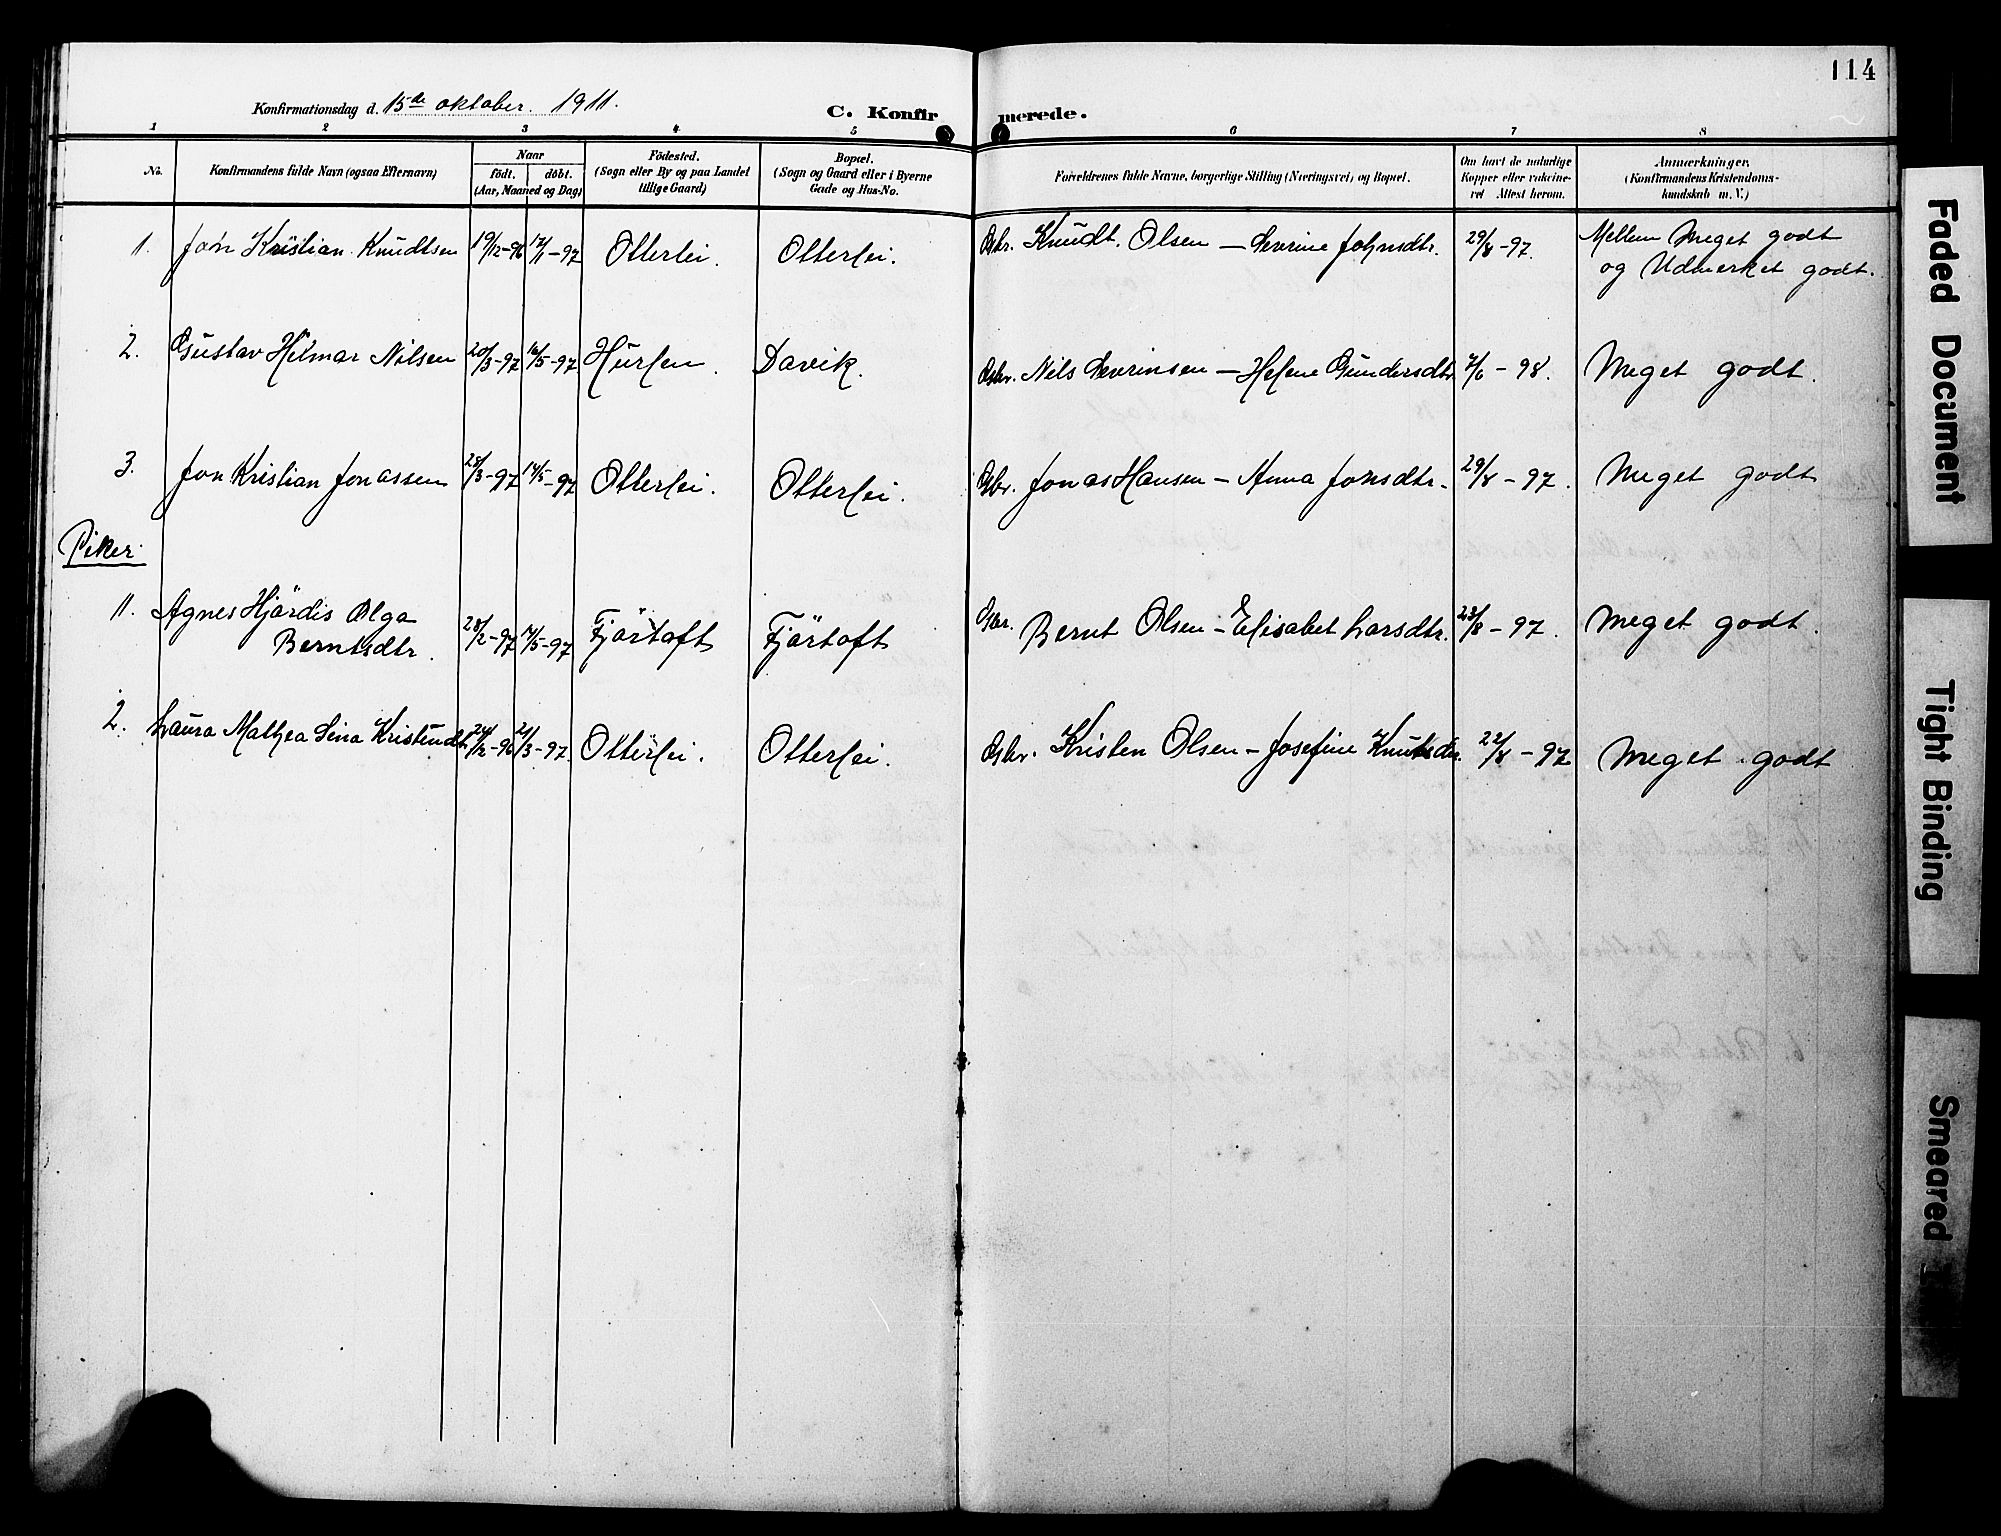 114
Konfirmationsdag d. 15de oktober. 1911.
C. Konfirmerede.
1 2 3 4 5 6 7 8
No.
Konfirmandens fulde Navn (ogsaa Efternavn)
Naar
født. døbt.
(Aar, Maaned og Dag)
Födested.
(Sogn eller By og paa Landet
tillige Gaard)
Bopæl.
(Sogn og Gaard eller i Byerne
Gade og Hus-No.
Forældrenes fulde Navne, borgerlige Stilling (Næringsvei) og Bopæl.
Om havt de naturlige
Kopper eller vakcine-
ret Attest herom.
Anmærkninger,
(Konfirmandens Kristendoms-
kundskab m. V.)
1. Jon Kristian Knudtsen 19/12-96 17/1-97 Otterlei. Otterlei. Gbr. Knudt. Olsen – Severine Johnsdtr. 29/8-97. Mellem Meget godt
og Udmerket godt.
2. Gustav Hilmar Nilsen 20/3-97 16/5-97 Hurlen. Davik. Gbr. Nils Severinsen – Helene Gundersdtr 7/6 - 98. Meget godt.
3. Jon Kristian Jonassen 28/3-97 14/5-97 Otterlei. Otterlei. Gbr. Jonas Hansen – Anna Jonsdtr. 29/8 - 97. Meget godt
Piker.
11. Agnes Hjördis Olga
Berntsdtr. 28/2-97 14/5-97 Fjörtoft Fjörtoft Gbr. Bernt Olsen – Elisabet Larsdtr. 23/8 - 97. Meget godt.
2. Laura Mathea Sina Kristendtr 24/12-96 21/3-97. Otterlei. Otterlei. Gbr. Kristen Olsen – Josefine Knutsdtr. 22/8 - 97 Meget godt
Faded Document
Tight Binding
Smeared